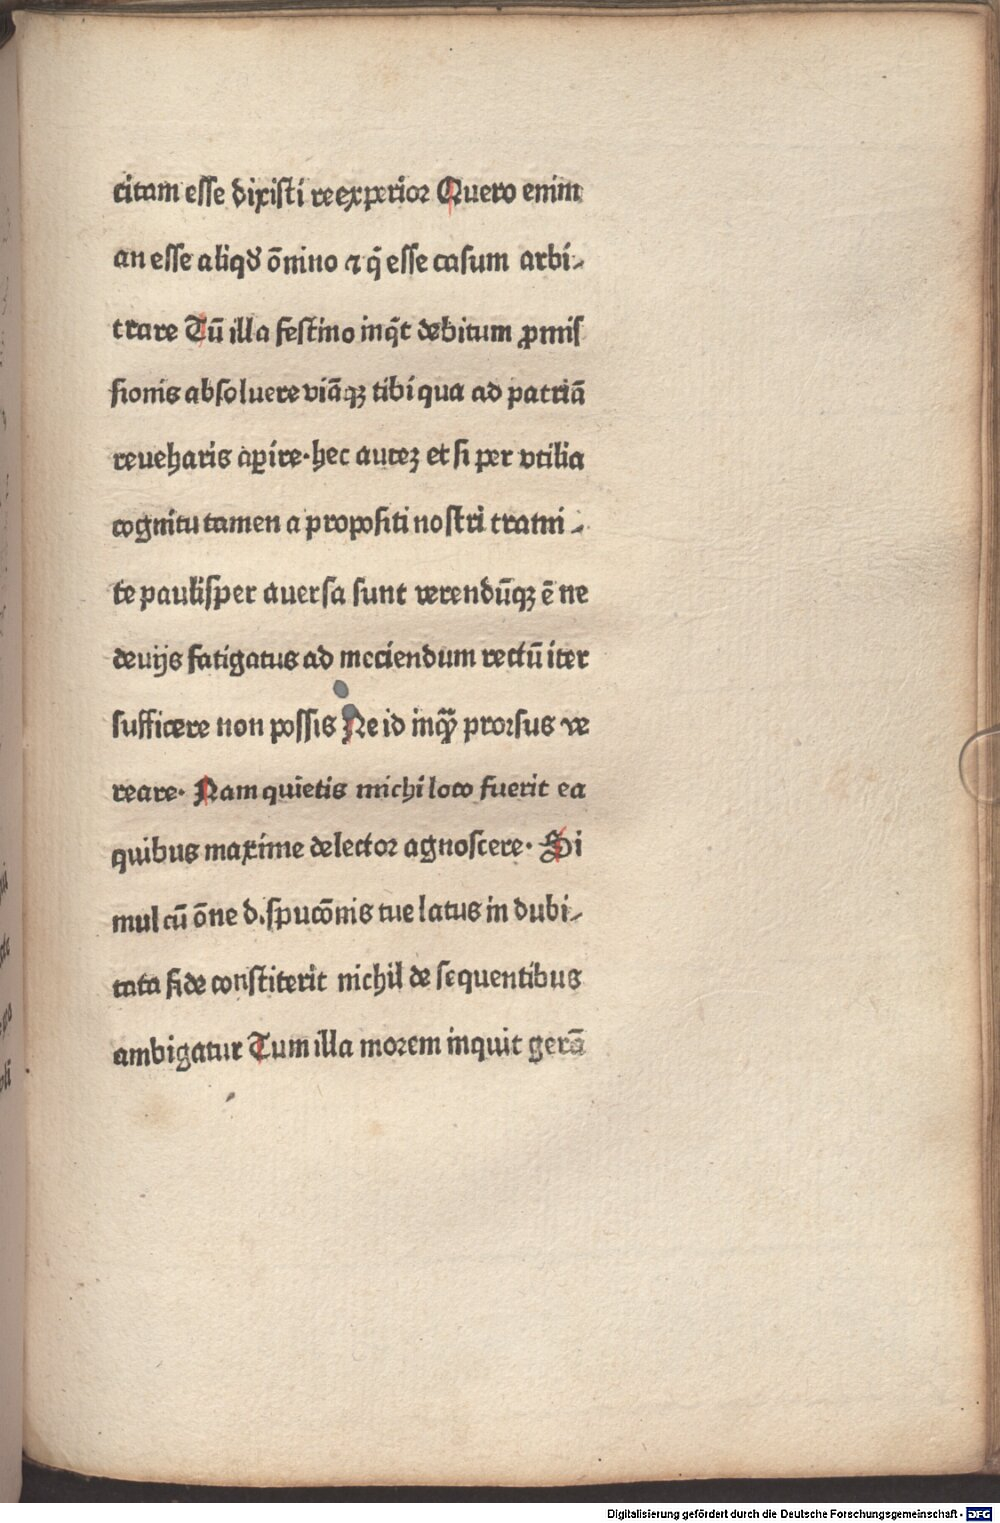 citam esse dixisti re experior Quero enim
an esse aliqđ õnino ⁊ q̃ esse casum arbi-
trare Tũ illa festino inq̃t debitum ꝓmis
sionis absoluere viãqꝫ tibi qua ad patriã
reueharis aꝑire·hec auteꝫ et si per vtilia
cognitu tamen a propositi nostri trami-
te paulisper auersa sunt verendũqꝫ ẽ ne
deuijs fatigatus ad meciendum rectũ iter
sufficere non possis Ne id inqͣꝫ prorsus ve
reare· Nam quietis michi loco fuerit ea
quibus maxime delector agnoscere· Si
mul cũ õne d.spucõnis tue latus in dubi-
tata fide constiterit nichil de sequentibus
ambigatur Tum illa morem inquit gerã
Digitalisierung gefördert durch die Deutsche Forschungsgemeinschaft - DFG